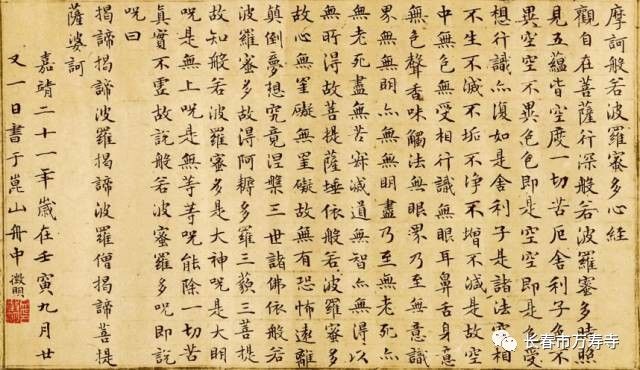 摩訶般若波羅蜜多心經
觀自在菩薩行深般若波羅蜜多時照
見五蘊皆空度一切苦厄舍利子色不
異空空不異色色即是空空即是色受
想行識亦復如是舍利子是諸法空相
不生不滅不垢不淨不增不減是故空
中無色無受相行識無眼耳鼻舌身意
無色聲香味觸法無眼界乃至無意識
界無無明亦無無明盡乃至無老死亦
無老死盡無苦集滅道無智亦無得以
無所得故菩提薩埵依般若波羅蜜多
故心無罣礙無罣礙故無有恐怖遠離
顛倒夢想究竟涅槃三世諸佛依般若
波羅蜜多故得阿耨多羅三藐三菩提
故知般若波羅蜜多是大神呪是大明
呪是無上呪是無等等呪能除一切苦
真實不虛故說般若波蜜羅多呪即說
呪曰
揭諦揭諦波羅揭諦波羅僧揭諦菩提
薩婆訶
嘉靖二十一年歲在壬寅九月廿
又一日書于崑山舟中 徵明
长春市万寿寺